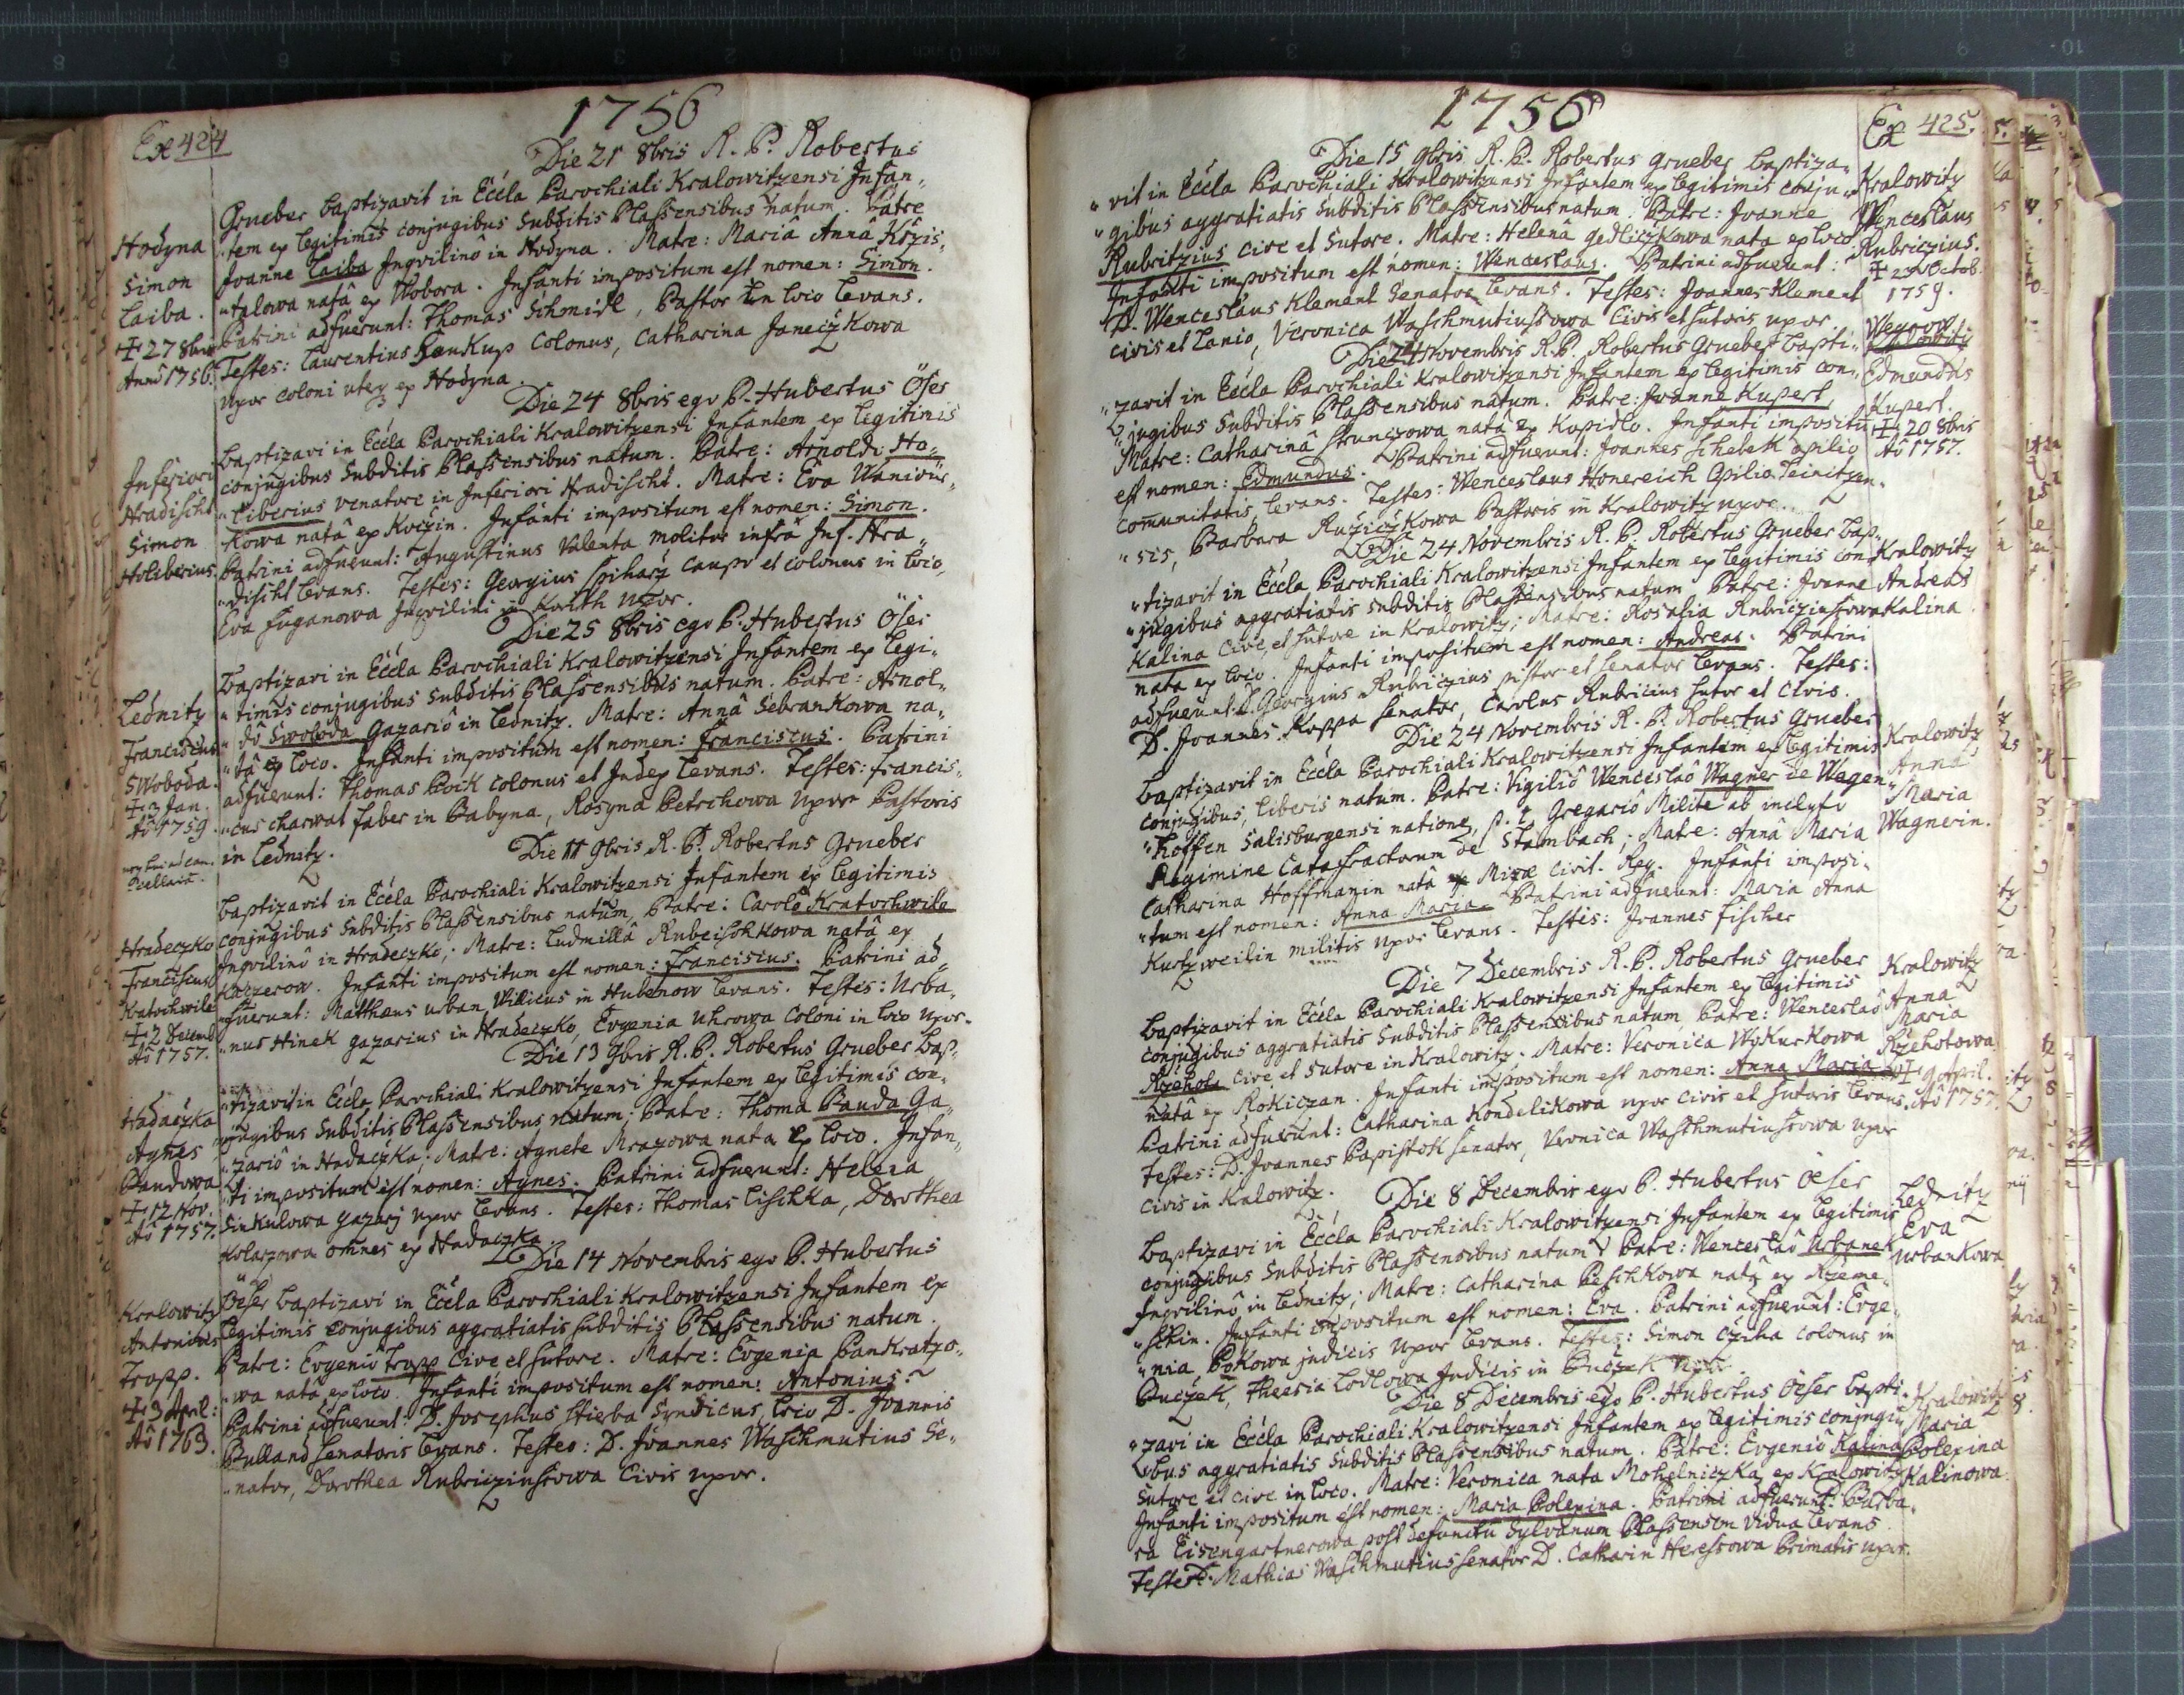 1756
Ex 424
Die 21 8bris R. P. Robertus
Grueber baptizavit in Eccla Parochiali Kralowitzensi Infan„
„tem ex legitimis conjugibus subditis Plassensibus natum. Patre
Hodyna
Joanne Laiba Inqvilinô in Hodyna. Matre: Maria Annâ Krzis„
Simon
„talowa natâ ex Wobora. Infanti impositum est nomen: Simon.
Laiba.
Patrini adfuerunt: Thomas Schmidl, Pastor in loco levans.
✝ 27 8bris
Testes: Laurentius Raukup Colonus, Catharina Janeczkowa
Anno 1756.
uxor coloni uterq ex Hodyna.
Die 24 8bris ego P. Hubertus Öser
baptizavi in Eccla Parochiali Kralowitzensi Infantem ex legitimis
Inferiori
conjugibus subditis Plassensibus natum. Patre: Arnoldi Ho„
Hradischt
„liberius venatore in Inferiori Hradischt. Matre: Eva Waniour„
Simon
kowa natâ ex Koczin. Infanti impositum est nomen: Simon.
Holiberius.
Patrini adfuerunt: Augustinus Valenta molitor infra Inf. Hra„
„discht levans. Testes: Georgius Spiharz caupo et colonus in loco,
Eva Zuganowa Inqvilini in uxor.
Die 25 8bris ego P. Hubertus Öser
baptizavi in Eccla Parochiali Kralowitzensi Infantem ex legi„
Lednitz
„timis conjugibus subditis Plassensibus natum. Patre: Arnol„
Franciscus
„dô Swoboda Gazariô in Lednitz. Matre: Annâ Sebrankowa na„
Swoboda.
„tâ ex loco. Infanti impositum est nomen: Franciscus. Patrini
✝ 3 Jan.
adfuerunt: Thomas Pock colonus et Judex levans. Testes: Francis„
Aô 1759
„cus Charwat faber in Babyna, Rosyna Petrchowa uxor Pastoris
in Lednitz.
Die 11 9bris R. P. Robertus Grueber
baptizavit in Eccla Parochiali Kralowitzensi Infantem ex legitimis
Hradeczko
conjugibus subditis Plassensibus natum, Patre: Carolo Kratochwile
Franciscus
Inqvilinô in Hradeczko; Matre: Ludmillâ Rubeischkowa natâ ex
Kratochwile
Kaczerow. Infanti impositum est nomen: Franciscus. Patrini ad„
✝ 2 Decemb
„fuerunt: Matthæus Urban, Villicus in Hubenow levans. Testes: Urba„
Aô 1757.
„nus Hinek gazarius in Hradeczko, Evgenia Uhrowa Coloni in loco uxor.
Die 13 9bris R. P. Robertus Grueber bap„
„tizavit in Eccla Parochiali Kralowitzensi Infantem ex legitimis con„
Hadaczka
„jugibus subditis Plassensibus natum; Patre: Thoma Panda Ga„
Agnes
„zariô in Hadaczka; Matre: Agnete Mrazowa nata ex loco. Infan„
Pandowa
„ti impositum est nomen: Agnes. Patrini adfuerunt: Helena
✝ 12 Nov.
Sinkulowa gazarj uxor levans. Testes: Thomas Lischka, Dorothea
Aô 1757.
Kolarzowa omnes ex Hadaczka.
Die 14 Novembris ego P. Hubertus
Kralowitz
Öeser baptizavi in Eccla Parochiali Kralowitzensi Infantem ex
Antonius
legitimis conjugibus aggratiatis subditis Plassensibus natum.
Tropp.
Patre: Evgeniô Tropp Cive et sutore. Matre: Evgenia Pankratzo„
✝ 3 April:
„wa natâ ex loco. Infanti impositum est nomen: Antonius.
Aô 1763.
Patrini adfuerunt: D. Josephus Stierba Syndicus, loco D. Joannis
Pulland Senatoris levans. Testes: D. Joannes Waschmutius Se„
„nator, Dorothea Rubriczinssowa Civis uxor.
1756
Ex 425.
Die 15 9bris R. P. Robertus Grueber baptiza„
„vit in Eccla Parochiali Kralowitzensi Infantem ex legitimis conju„
Kralowitz
„gibus aggratiatis subditis Plassensibus natum. Patre: Joanne
Wenceslaus
Rubritzius cive et sutore. Matre: Helena Gedliczkowa nata ex loco
Rubriczius.
Infanti impositum est nomen: Wenceslaus. Patrini adfuerunt:
✝ 23 Octob.
D. Wenceslaus Klement Senator levans. Testes: Joannes Klement
1759.
civis et lanio, Veronica Waschmutiussowa Civis et sutoris uxor.
Die 24 Novembris R. P. Robertus Grueber bapti„
Kralowitz
„zavit in Eccla Parochiali Kralowitzensi Infantem ex legitimis con„
Edmundus
„jugibus subditis Plassensibus natum. Patre: Joanne Kupert,
Kupert.
Matre: Catharinâ Strunczowa natâ ex Kopidlo. Infanti impositu
✝ 20 8bris
est nomen: Edmundus. Patrini adfuerunt: Joannes Schebek opilio
Aô 1757.
Comunitatis levans. Testes: Wenceslaus Honereich Opilio Teinitzen„
„sis, Barbara Ruziczkowa Pastoris in Kralowitz uxor.
Die 24 Novembris R. P. Robertus Grueber bap„
„tizavit in Eccla Parochiali Kralowitzensi Infantem ex legitimis con„
Kralowitz
„jugibus aggratiatis subditis Plassensibus natum Patre: Joanne
Andreas
Kalina Cive, et sutore in Kralowitz; Matre: Rosalia Rubricziussowa
Kalina
nata ex loco. Infanti impositum est nomen: Andreas. Patrini
adfuerunt: D. Georgius Rubriczius pistor et senator levans. Testes:
D. Joannes Koppa senator, Carolus Rubricius sutor et Civis.
Die 24 Novembris R. P. Robertus Grueber
Kralowitz
baptizavit in Eccla Parochiali Kralowitzensi Infantem ex legitimis
Anna
conjugibus, liberis natum. Patre: Vigiliô Wenceslaô Wagner de Wagen„
Maria
„hoffen Salisburgensi natione, p. t. Gregariô Milite ab inclyto
Wagnerin.
Regimine Catafractorum de Stambach; Matre: Annâ Maria
Catharina Hoffmanin natâ Misæ Civit. Reg. Infanti imposi„
„tum est nomen: Anna Maria. Patrini adfuerunt: Maria Anna
Kurtzweilin militis uxor levans. Testis: Joannes Fischer
Die 7 Decembris R. P. Robertus Grueber
Kralowitz
baptizavit in Eccla Parochiali Kralowitzensi Infantem ex legitimis
Anna
conjugibus aggratiatis subditis Plassensibus natum, Patre: Wenceslaô
Maria
Rzehola cive, et sutore in Kralowitz. Matre: Veronica Wokurkowa
Rzeholowa.
natâ ex Rokiczan. Infanti impositum est nomen: Anna Maria
✝ 9 April.
Patrini adfuerunt: Catharina Kondelikowa uxor civis et sutoris levans.
Aô 1757.
Testes: D. Joannes Papistok senator, Veronica Waschmutiussowa uxor
Civis in Kralowitz.
Die 8 Decembris ego P. Hubertus Öeser
Lednitz
baptizavi in Eccla Parochiali Kralowitzensi Infantem ex legitimis
Eva
conjugibus subditis Plassensibus natum Patre: Wenceslaô Urbanek
Urbankowa
Inqvilinô in Lednitz; Matre: Catharina Peschkowa natâ ex Rzeme„
„schin. Infanti impositum est nomen: Eva. Patrini adfuerunt: Evge„
„nia Pokowa judicis uxor levans. Testes: Simon Cziha colonus in
Buczek, Theresia Lodlowa Judicis in Buczek uxor.
Die 8 Decembris ego P. Hubertus Öeser bapti„
Kralowitz
„zavi in Eccla Parochiali Kralowitzensi Infantem ex legitimis conjugi„
Maria
„bus aggratiatis subditis Plassensibus natum. Patre: Evgeniô Kalina
Polexina
Sutore et cive in loco. Matre: Veronica nata Mohelniczka ex Kralowitz
Kalinowa.
Infanti impositum est nomen: Maria Polexina. Patrini adfuerunt: Barba„
ra Eisengartnerowa post defunctu Sylvanum Plassensem vidua levans
Testes: Mathias Waschmutius senator D. Catharin Heressowa Primatis uxor.